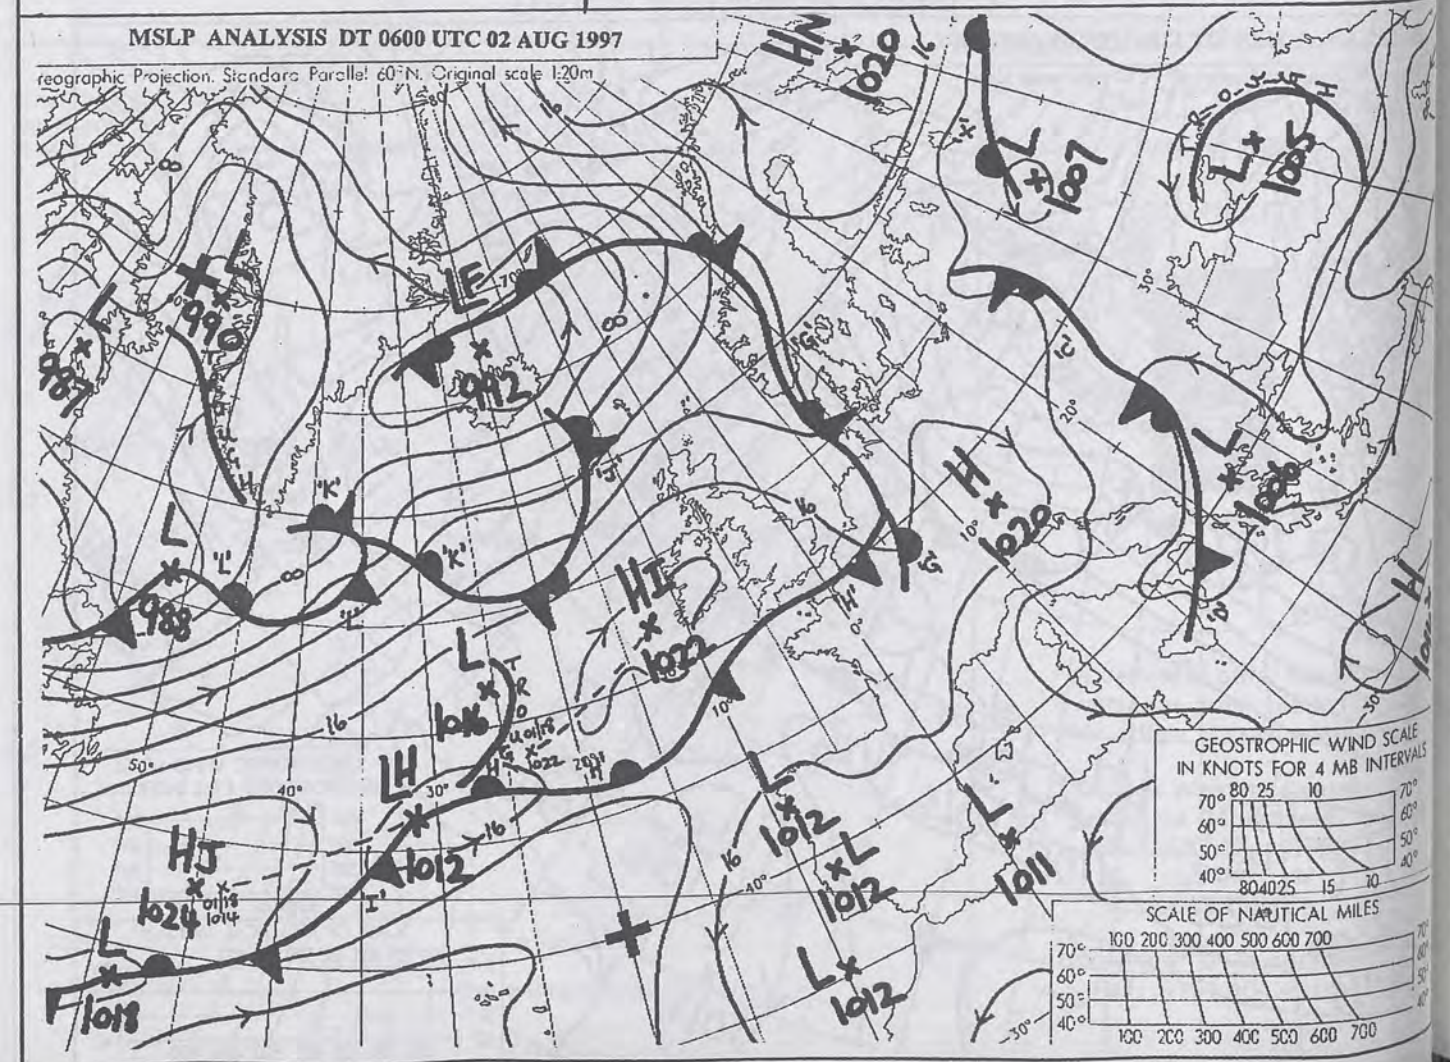 MSLP ANALYSIS DT 0600 UTC 02 AUG 1997
reographic Projection. Standard Parallel 60°N. Original scale 1:20m
HN
1020
16
80
'X'
L
1007
TROUGH
L
1005
8
L
990
L
987
LF
70°
992
8
'G'
30°
20°
L
1008
H
1020
10°
'J'
'K'
'K'
16
'G'
'H'
0°
'L'
L
988
8
'L'
HI
1022
L
1016
TROUGH
01/18
1022
16
50°
40°
30°
10°
LH
1012
16
HJ
1024
01/18
1014
'I'
L
1018
L
1012
L
1012
L
1012
L
1011
16
40°
H
30
30°
GEOSTROPHIC WIND SCALE
IN KNOTS FOR 4 MB INTERVALS
80 25 10
70° 70°
60° 60°
50° 50°
40° 40°
80 40 25 15 10
SCALE OF NAUTICAL MILES
100 200 300 400 500 600 700
70° 70°
60° 60°
50° 50°
40° 40°
100 200 300 400 500 600 700